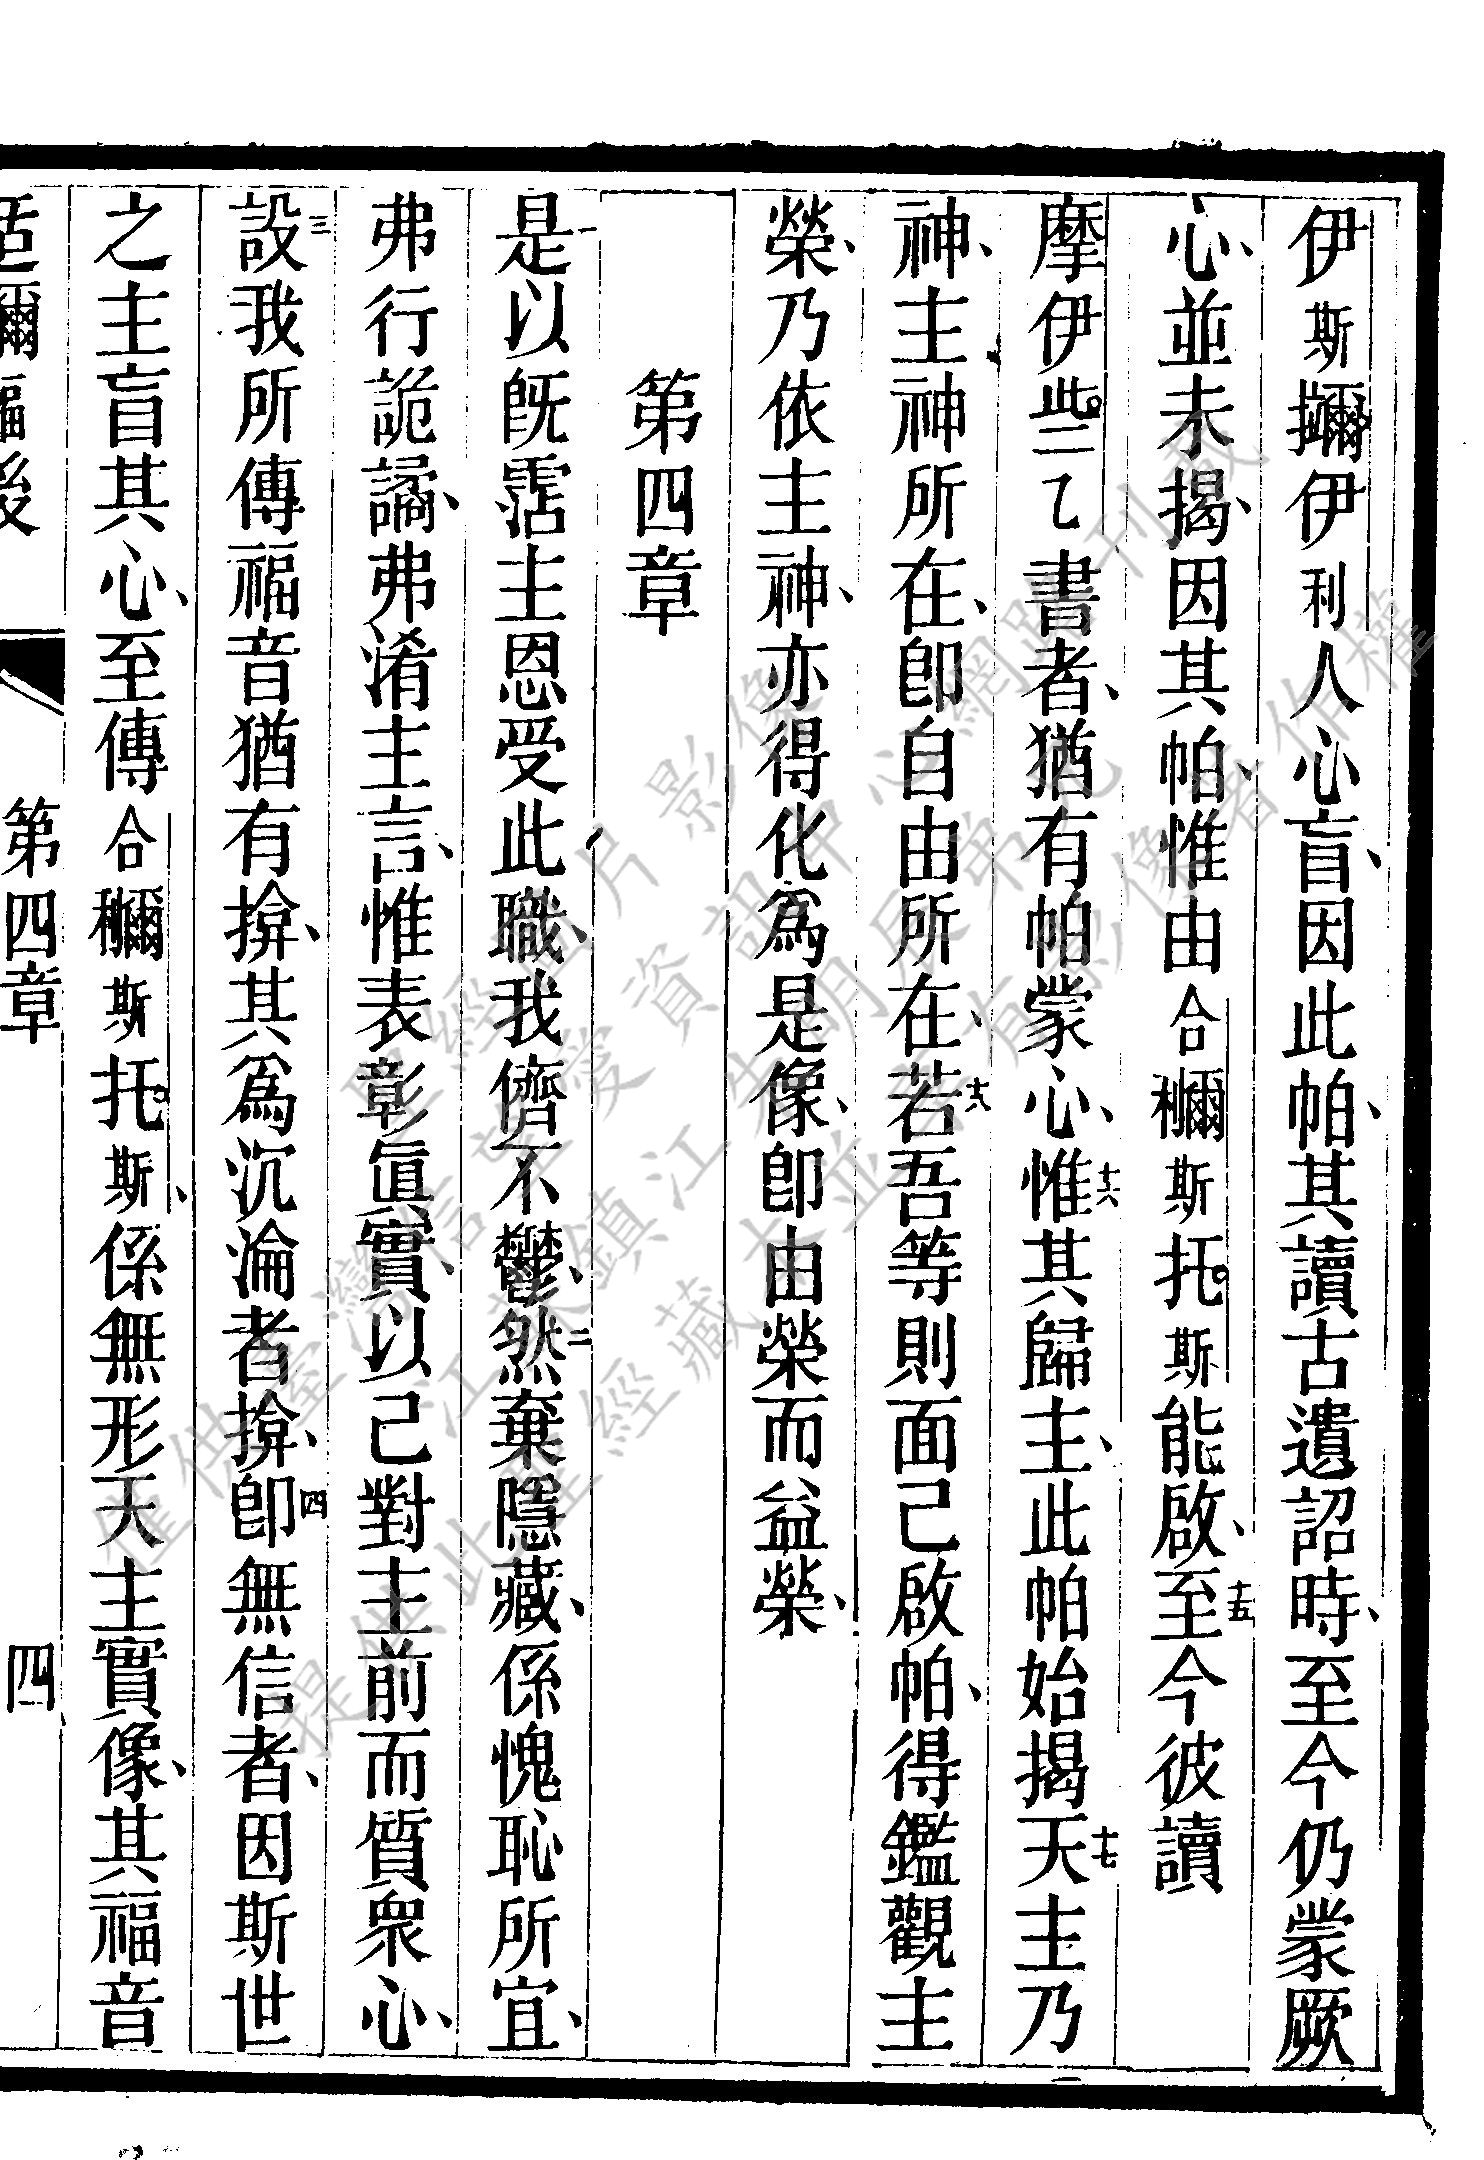 伊斯擟伊利人心盲、因此帕、其讀古遺詔時、至今仍蒙厥
心、並未揭、因其帕、惟由合穪斯托斯能啟、十五至今彼讀
摩伊些乙書者、猶有帕蒙心、十六惟其歸主、此帕始揭十七天主乃
神、主神所在、即自由所在、十八若吾等則面己啟帕、得鑑觀主
榮、乃依主神、亦得化爲是像、即由榮而益榮、
第四章
一是以旣霑主恩受此職、我儕不鬱、二然棄隱藏、係愧恥所宜、
弗行詭譎、弗淆主言、惟表彰眞實、以己對主前而質衆心、
三設我所傳福音猶有揜、其爲沉淪者揜、四即無信者、因斯世
之主盲其心、至傳合穪斯托斯、係無形天主實像、其福音
第四章
四
提供此聖經藏本並享有影像著作權